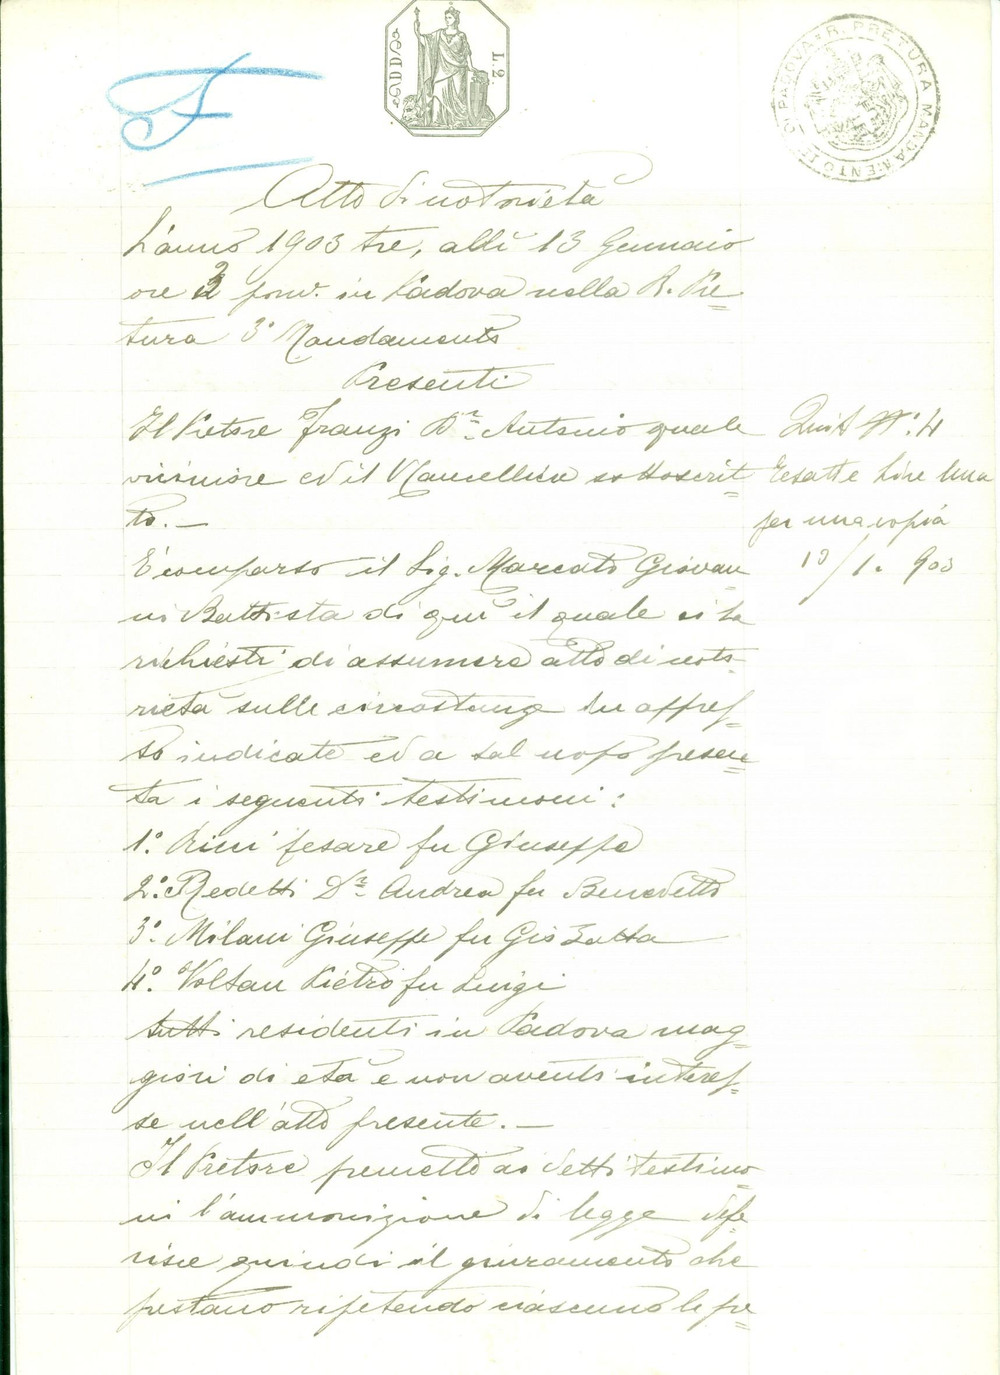 L. 2.
R. PRETURA MANDAMENTO III DI PADOVA
Atto di notorietà
L'anno 1903 tre, alli 13 Gennaio
ore 2 pom. in Padova nella R. Pre=
tura 3° Mandamento
Presenti
Il Pretore Franzi Dr. Antonio quale
ed il Cancelliere sottoscrit=
to. —
È comparso il Sig. Marcato Giovan=
ni Battista di qui il quale ci ha
richiesti di assumere atto di noto=
rietà sulle circostanze in appres=
so indicate ed a tal uopo presen=
ta i seguenti testimoni:
1° Rizzi Cesare fu Giuseppe
2° Redetti Dr. Andrea fu Benedetto
3° Milani Giuseppe fu Gio Batta
4° Voltan Pietro fu Luigi
tutti residenti in Padova mag=
giori di età e non aventi interes=
se nell'atto presente. —
Il Pretore premetto ai detti testimo=
ni l'ammonizione di legge defe
risce quindi il giuramento che
prestano ripetendo ciascuno le pr=
Quit N°: 4
Esatte Lire Una
per una copia
13/1. 903